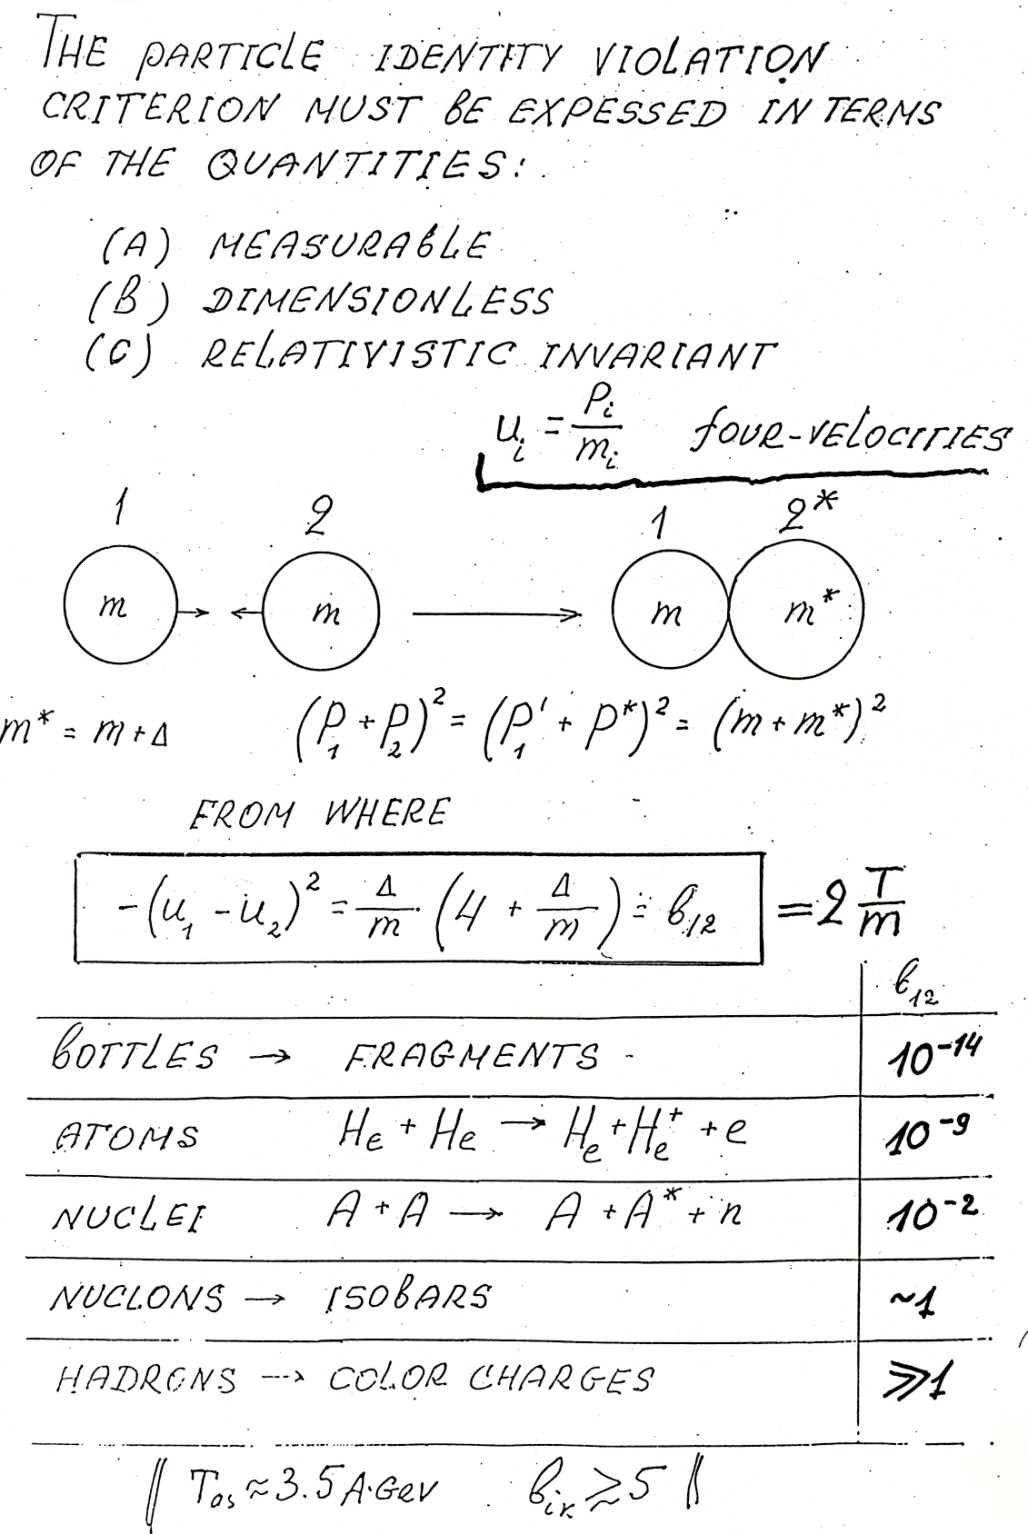 THE PARTICLE IDENTITY VIOLATION
CRITERION MUST BE EXPESSED IN TERMS
OF THE QUANTITIES:
(A) MEASURABLE
(B) DIMENSIONLESS
(C) RELATIVISTIC INVARIANT
u_i = P_i / m_i four-velocities
1 2 1 2*
m m → m m*
m* = m + Δ (P_1 + P_2)² = (P_1' + P*)² = (m + m*)²
FROM WHERE
-(u_1 - u_2)² = Δ/m (4 + Δ/m) = b_12 = 2 T/m
b_12
BOTTLES → FRAGMENTS 10⁻¹⁴
ATOMS He + He → He + He⁺ + e 10⁻⁹
NUCLEI A + A → A + A* + n 10⁻²
NUCLONS → ISOBARS ~1
HADRONS → COLOR CHARGES ≫1
‖ T_as ≈ 3.5 A·GeV b_ik ≳ 5 ‖